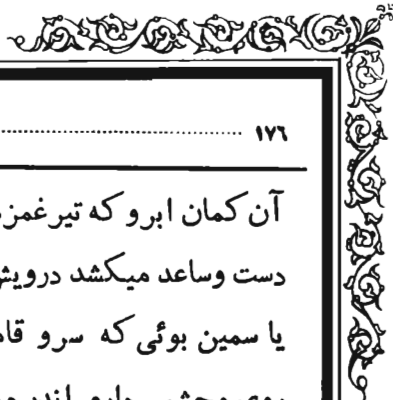 ١٧٦
آن کمان ابرو که تیر غمزه
دست وساعد میکشد درویش
یا سمین بوئی که سرو